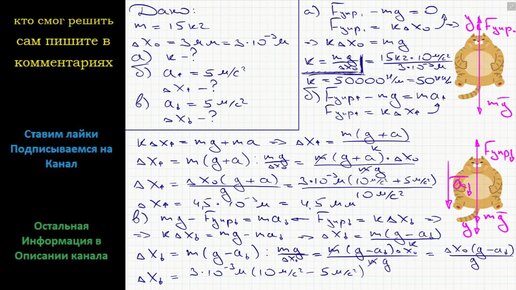 кто смог решить
сам пишите в
комментариях
Ставим лайки
Подписываемся на
Канал
Остальная
Информация в
Описании канала
Дано:
m = 15кг
Δx₀ = 3мм = 3·10⁻³м
а) k - ?
б) a↑ = 5м/с²
Δx↑ - ?
в) a↓ = 5м/с²
Δx↓ - ?
а) Fупр. - mg = 0
Fупр. = kΔx₀
⇒ kΔx₀ = mg
k = mg/Δx₀ = 15кг·10м/с²/3·10⁻³м
k = 50000Н/м = 50кН/м
б) Fупр↑ - mg = ma↑
Fупр↑ = kΔx↑
kΔx↑ = mg + ma ⇒ Δx↑ = m(g+a)/k
Δx↑ = m(g+a) : mg/Δx₀ = m(g+a)·Δx₀/mg
Δx↑ = Δx₀(g+a)/g = 3·10⁻³м(10м/с²+5м/с²)/10м/с²
Δx↑ = 4,5·10⁻³м = 4,5мм
в) mg - Fупр↓ = ma↓ Fупр↓ = kΔx↓ ⇒
⇒ kΔx↓ = mg - ma↓ ⇒ Δx↓ = m(g-a↓)/k
Δx↓ = m(g-a↓) : mg/Δx₀ = m(g-a↓)Δx₀/mg = Δx₀(g-a↓)/g
Δx↓ = 3·10⁻³м(10м/с² - 5м/с²)
y Fупр.
mg
Fупр↓
a↓
y mg